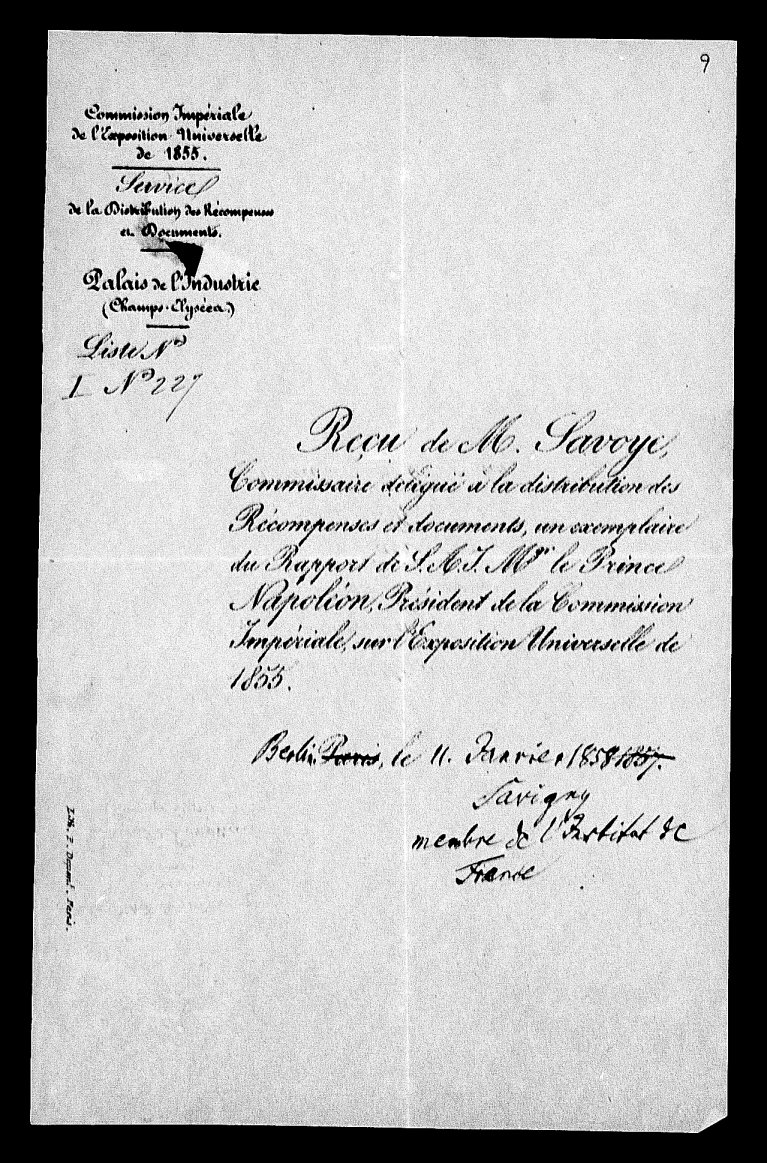 9
Commission Impériale
de l'Exposition Universelle
de 1855.
Service
de la Distribution des Récompenses
et Documents.
Palais de l'Industrie
(Champs-Elysées)
Liste No
I No 227
Reçu de M. Savoye,
Commissaire délégué à la distribution des
Récompenses et documents, un exemplaire
du Rapport de S. A. I. Mgr le Prince
Napoléon, Président de la Commission
Impériale, sur l'Exposition Universelle de
1855.
Berlin Paris, le 11. Janvier 1858 1857.
Savigny
membre de l'Institut de
France
Lith. Paris.